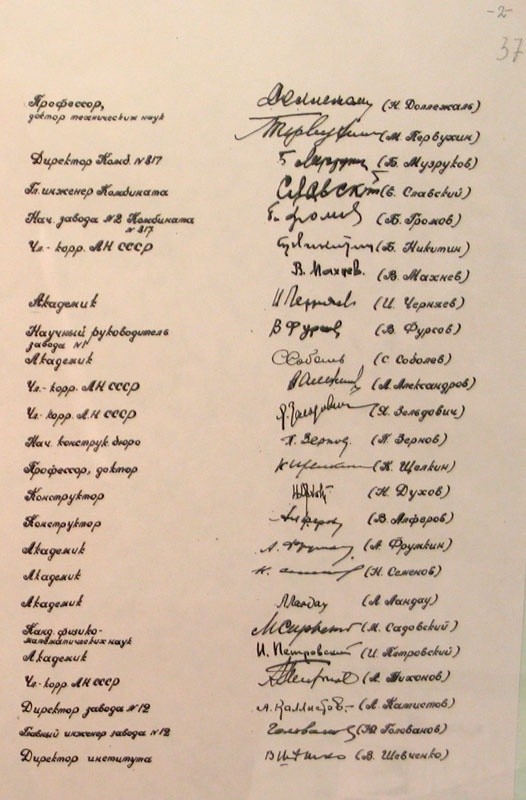 -2-
37
Профессор, (Н. Доллежаль)
доктор технических наук
(М. Первухин)
Директор Комб. №817 (Б. Музруков)
Гл. инженер Комбината Славский (Е. Славский)
Нач. завода №2 Комбината (Б. Громов)
№ 817
Чл.-корр. АН СССР (Б. Никитин)
В. Махнев. (В. Махнев)
Академик (И. Черняев)
Научный руководитель В Фурсов (В. Фурсов)
завода №1
Академик Соболь (С. Соболев)
Чл.-корр. АН СССР (А. Александров)
Чл.-корр. АН СССР (Я. Зельдович)
Нач. конструк. бюро П. Зернов. (П. Зернов)
Профессор, доктор (К. Щелкин)
Конструктор (Н. Духов)
Конструктор (В. Алферов)
Академик (А. Фрумкин)
Академик (Н. Семенов)
Академик Ландау (Л. Ландау)
Канд. физико- (М. Садовский)
математических наук
Академик И. Петровский (И. Петровский)
Чл.-корр. АН СССР (А. Тихонов)
Директор завода №12 А. Каллистов. (А. Калистов)
Главный инженер завода №12 Голованов (Ю. Голованов)
Директор института (В. Шевченко)